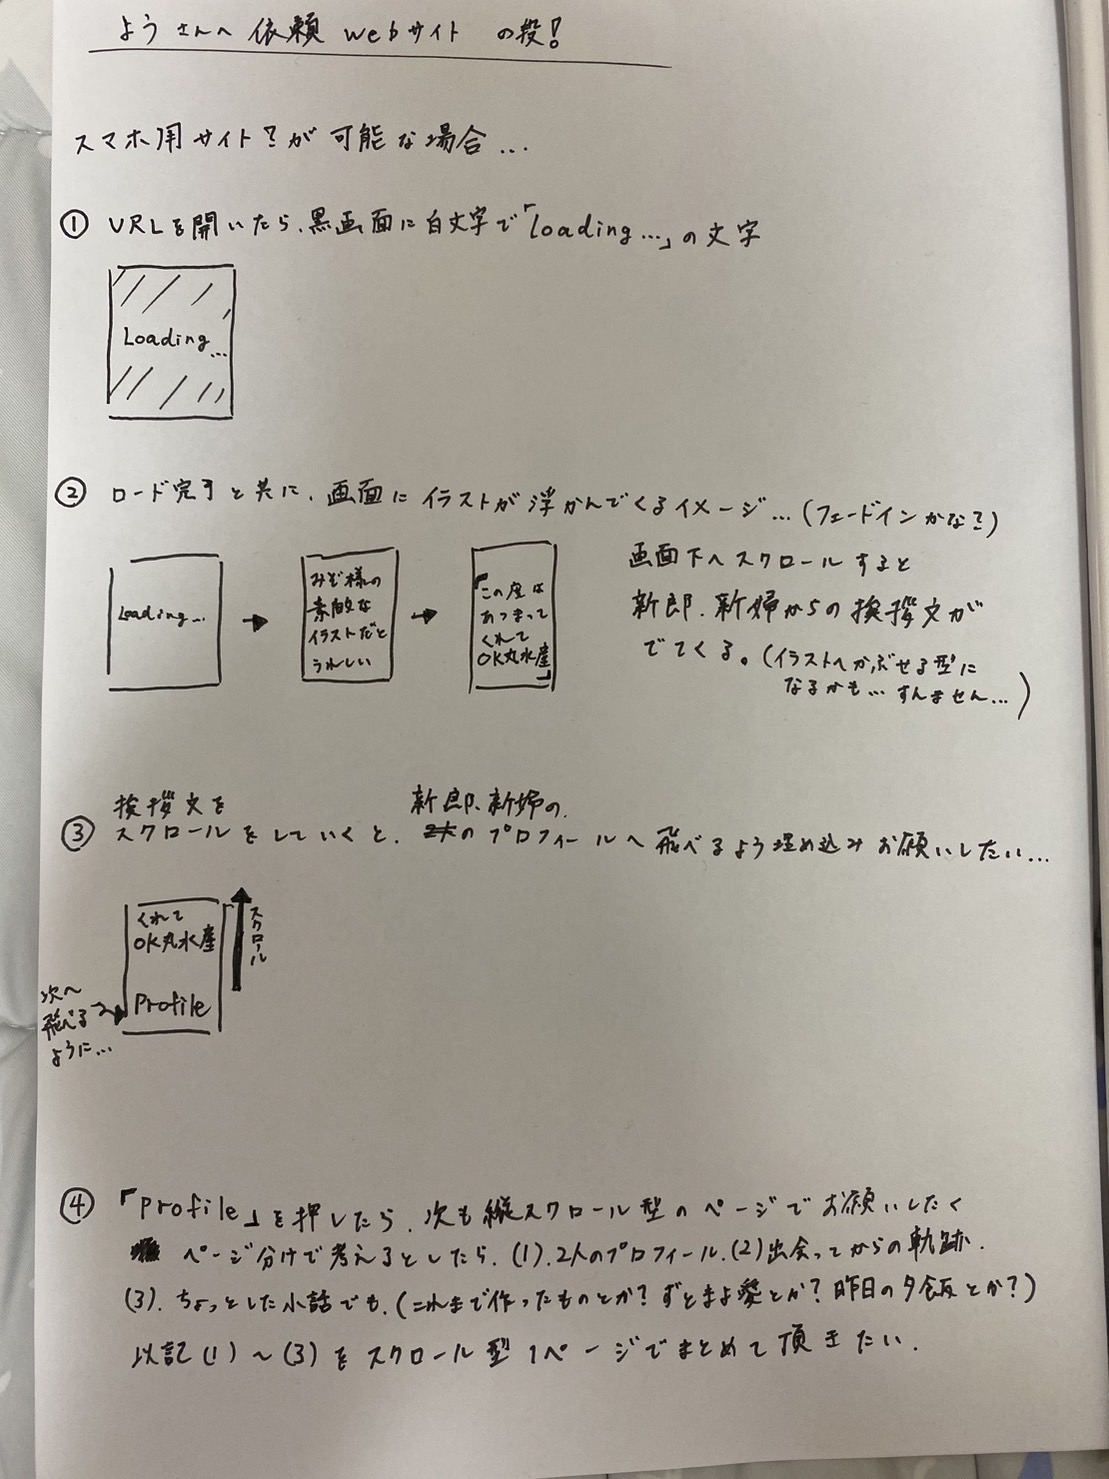 ようさんへ 依頼 webサイト の段!
スマホ用サイト?が可能な場合...
① URLを開いたら、黒画面に白文字で「loading...」の文字
Loading...
② ロード完了と共に、画面にイラストが浮かんでくるイメージ...(フェードインかな?)
Loading...
みぞ様の
素敵な
イラストだと
うれしい
「この度は
あつまって
くれて
OK丸水産」
画面下へスクロールすると
新郎、新婦からの挨拶文が
でてくる。(イラストへかぶせる型に
なるかも... すんません...)
挨拶文を
③ スクロールをしていくと、
新郎、新婦の
のプロフィールへ飛べるよう埋め込みお願いしたい...
くれて
OK丸水産
Profile
スクロール
次へ
飛べる
ように...
④ 「Profile」を押したら、次も縦スクロール型のページでお願いしたく
ページ分けで考えるとしたら、(1).2人のプロフィール、(2)出会ってからの軌跡、
(3). ちょっとした小話でも、(これまで作ったものとか?ずとまよ愛とか?昨日の夕飯とか?)
以記(1)～(3)をスクロール型1ページでまとめて頂きたい.